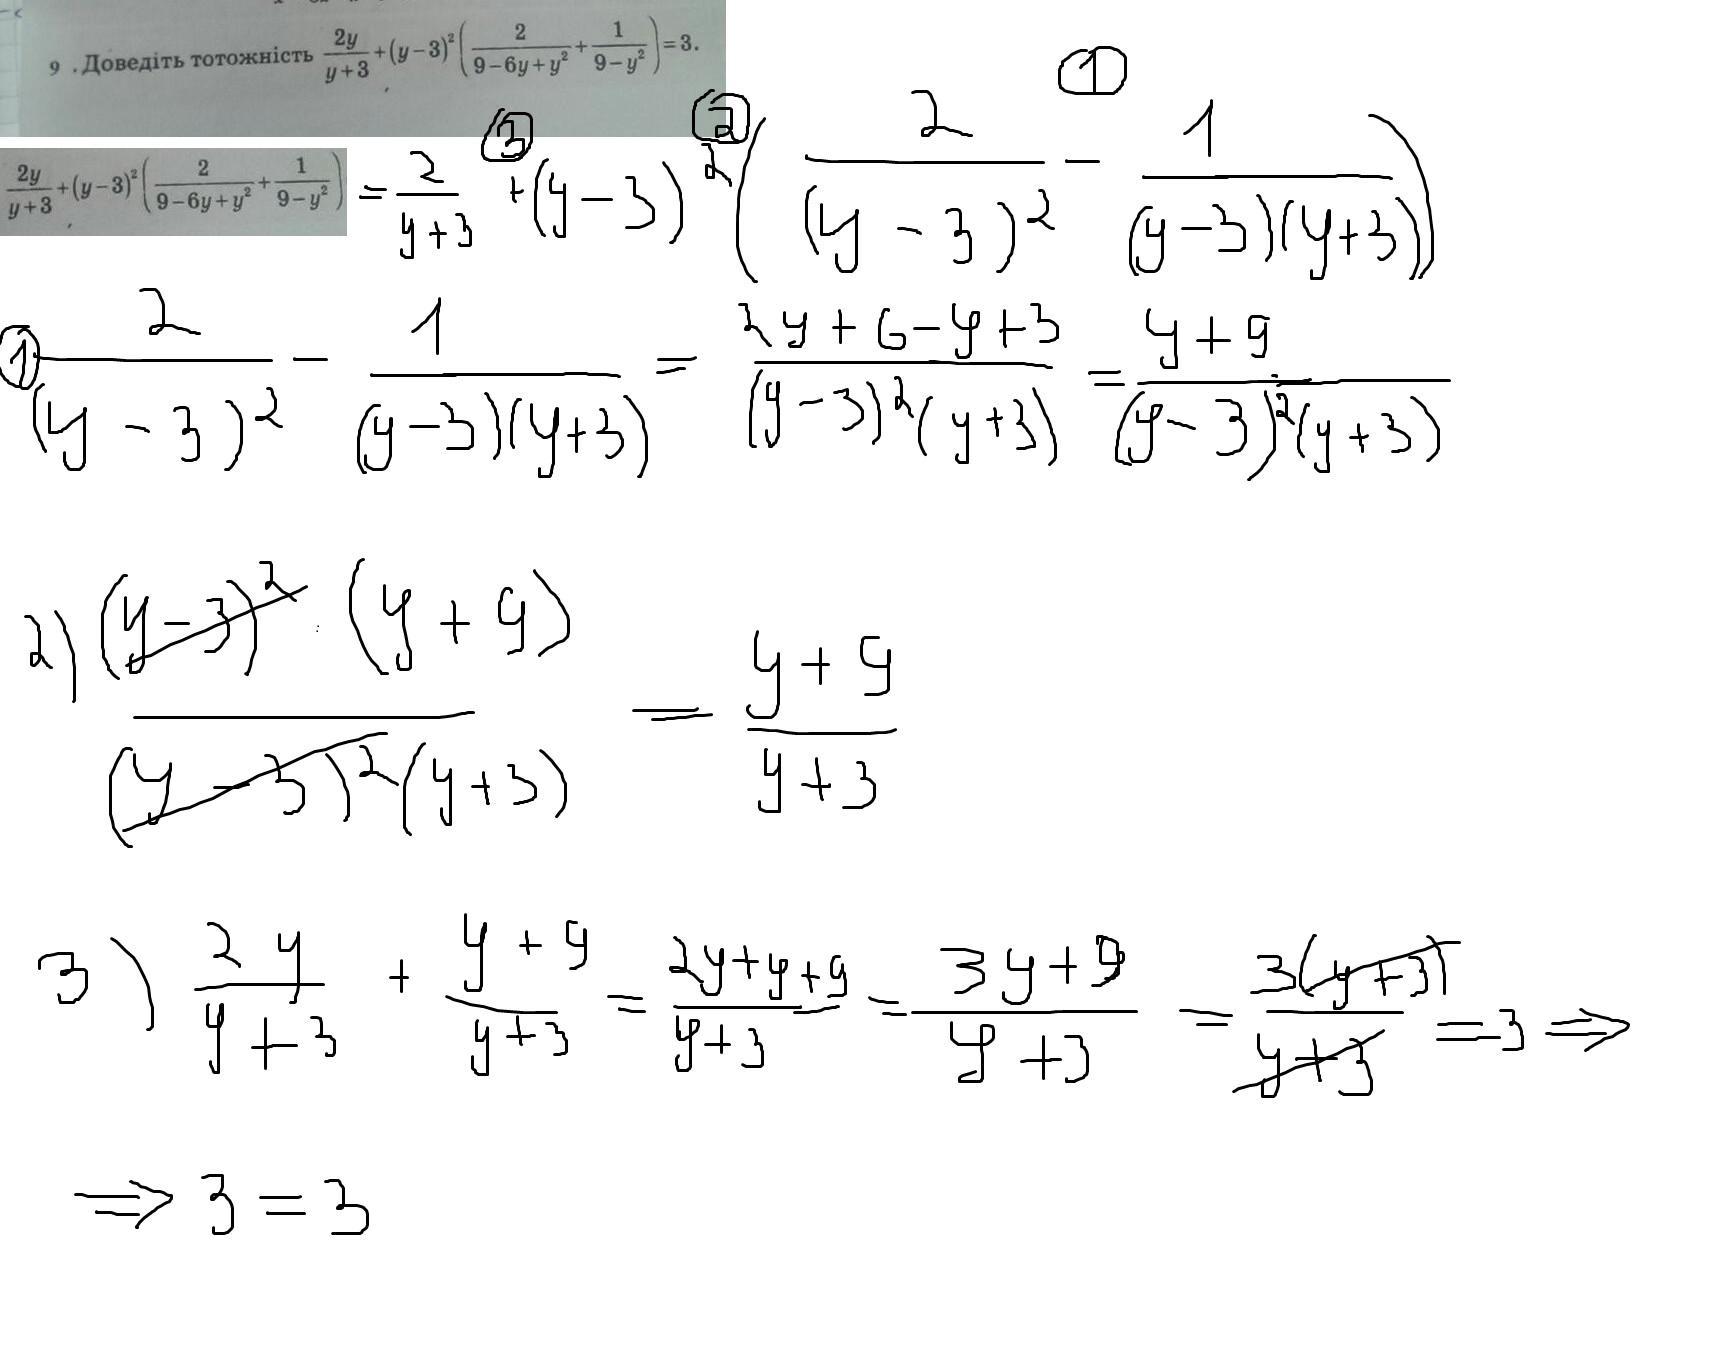 9 . Доведіть тотожність 2y/(y+3) + (y−3)²(2/(9−6y+y²) + 1/(9−y²)) = 3.
2y/(y+3) + (y−3)²(2/(9−6y+y²) + 1/(9−y²)) = 2/(y+3) + (y−3)²(2/(y−3)² − 1/((y−3)(y+3)))
3 2 1
1 2/(y−3)² − 1/((y−3)(y+3)) = (2y+6−y+3)/((y−3)²(y+3)) = (y+9)/((y−3)²(y+3))
2) ((y−3)² · (y+9))/((y−3)²(y+3)) = (y+9)/(y+3)
3) 2y/(y+3) + (y+9)/(y+3) = (2y+y+9)/(y+3) = (3y+9)/(y+3) = 3(y+3)/(y+3) = 3 ⇒
⇒ 3 = 3